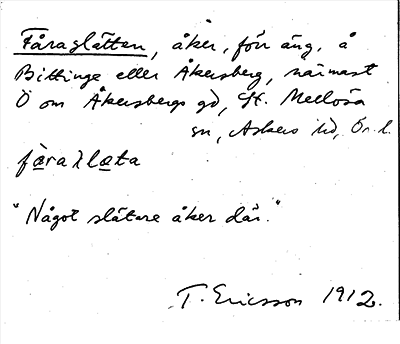 Fåraslätten, åker, förr äng, å
Bittinge eller Åkersberg, närmast
Ö om Åkersbergs gd, St. Mellösa
sn, Askers hd, Ör. l.
"Något slätare åker där."
T. Ericsson 1912.